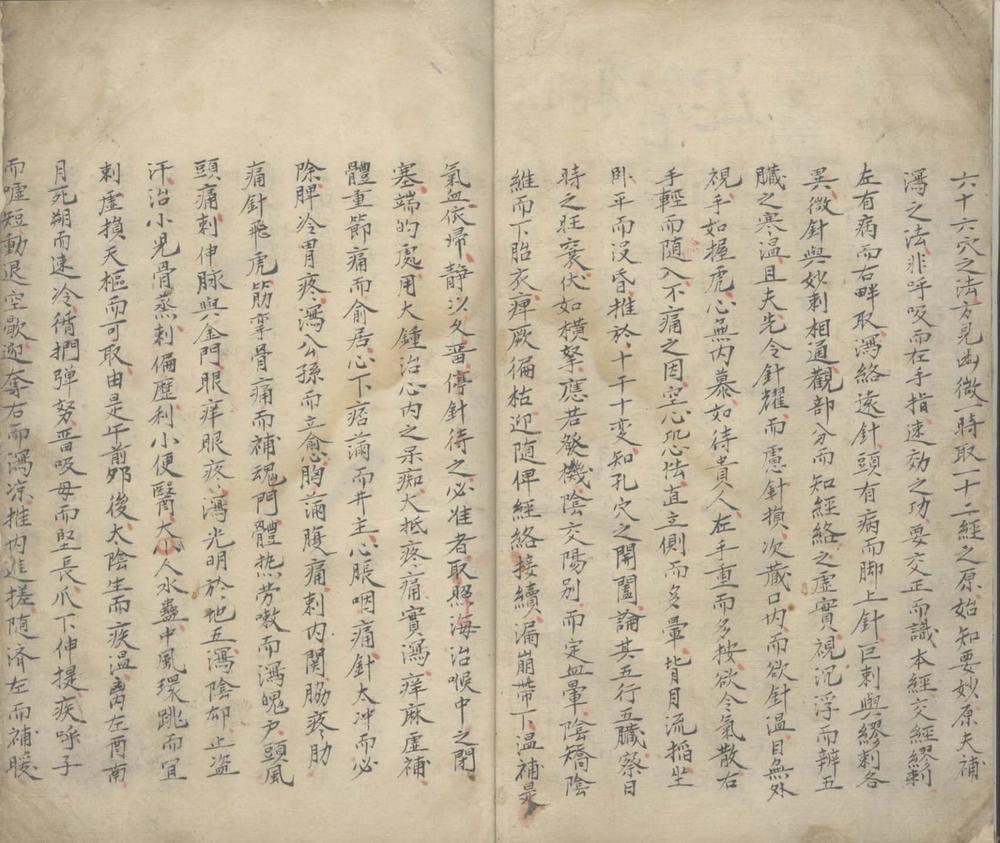 六十六穴之法方見幽微一時取一十二經之原始知要妙原夫補
瀉之法非呼吸而在手指速効之功要交正而識本經交經繆刺
左有病而右畔取瀉絡遠針頭有病而脚上針巨刺與繆刺各
異微針與妙刺相通觀部分而知經絡之虛實視沉浮而辨五
臟之寒温且夫先令針耀而慮針損次蔵口内而欲針温目無外
視手如握虎心無内慕如待貴人左手重而多按欲令氣散右
手輕而随入不痛之因空心恐怯直立側而多暈背目流搯坐
卧平而没昏推於十干十變知孔穴之開闔論其五行五臟察日
時之旺衰伏如横弩應若發機陰交陽别而定血暈陰矯陰
維而下胎衣痺厥偏枯迎随俾經絡接續漏崩帶下温補是
氣血依歸静以久畱停針待之必准者取照海治喉中之閉
塞端的處用大鍾治心内之呆痴大抵疼痛實瀉痒麻虛補
體重節痛而俞居心下痞滿而井主心脹咽痛針太冲而必
除脾冷胃疼瀉公孫而立愈胸滿腹痛刺内関脇疼肋
痛針飛虎筋挛骨痛而補魂門體热劳嗽而瀉魄户頭風
頭痛刺伸脉與金門眼痒眼疼瀉光明於地五瀉陰郄止盗
汗治小児骨蒸刺偏歴利小便醫大人水蠱中風環跳而宜
刺虛損天樞而可取由是午前夘後太陰生而疾温离左酉南
月死朔而速冷循捫弹努畱吸母而堅長爪下伸提疾呼子
而嘘短動退空歇迎奪右而瀉凉推内進搓随済左而補暖